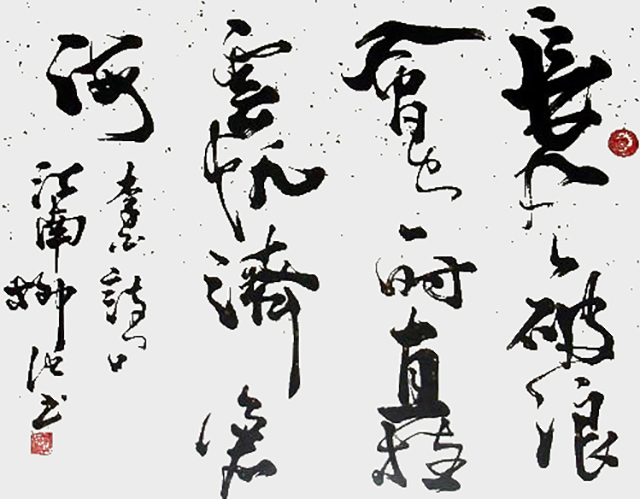 長風破浪
會有時直挂
雲帆濟滄
海
李白詩句
江南柳池書